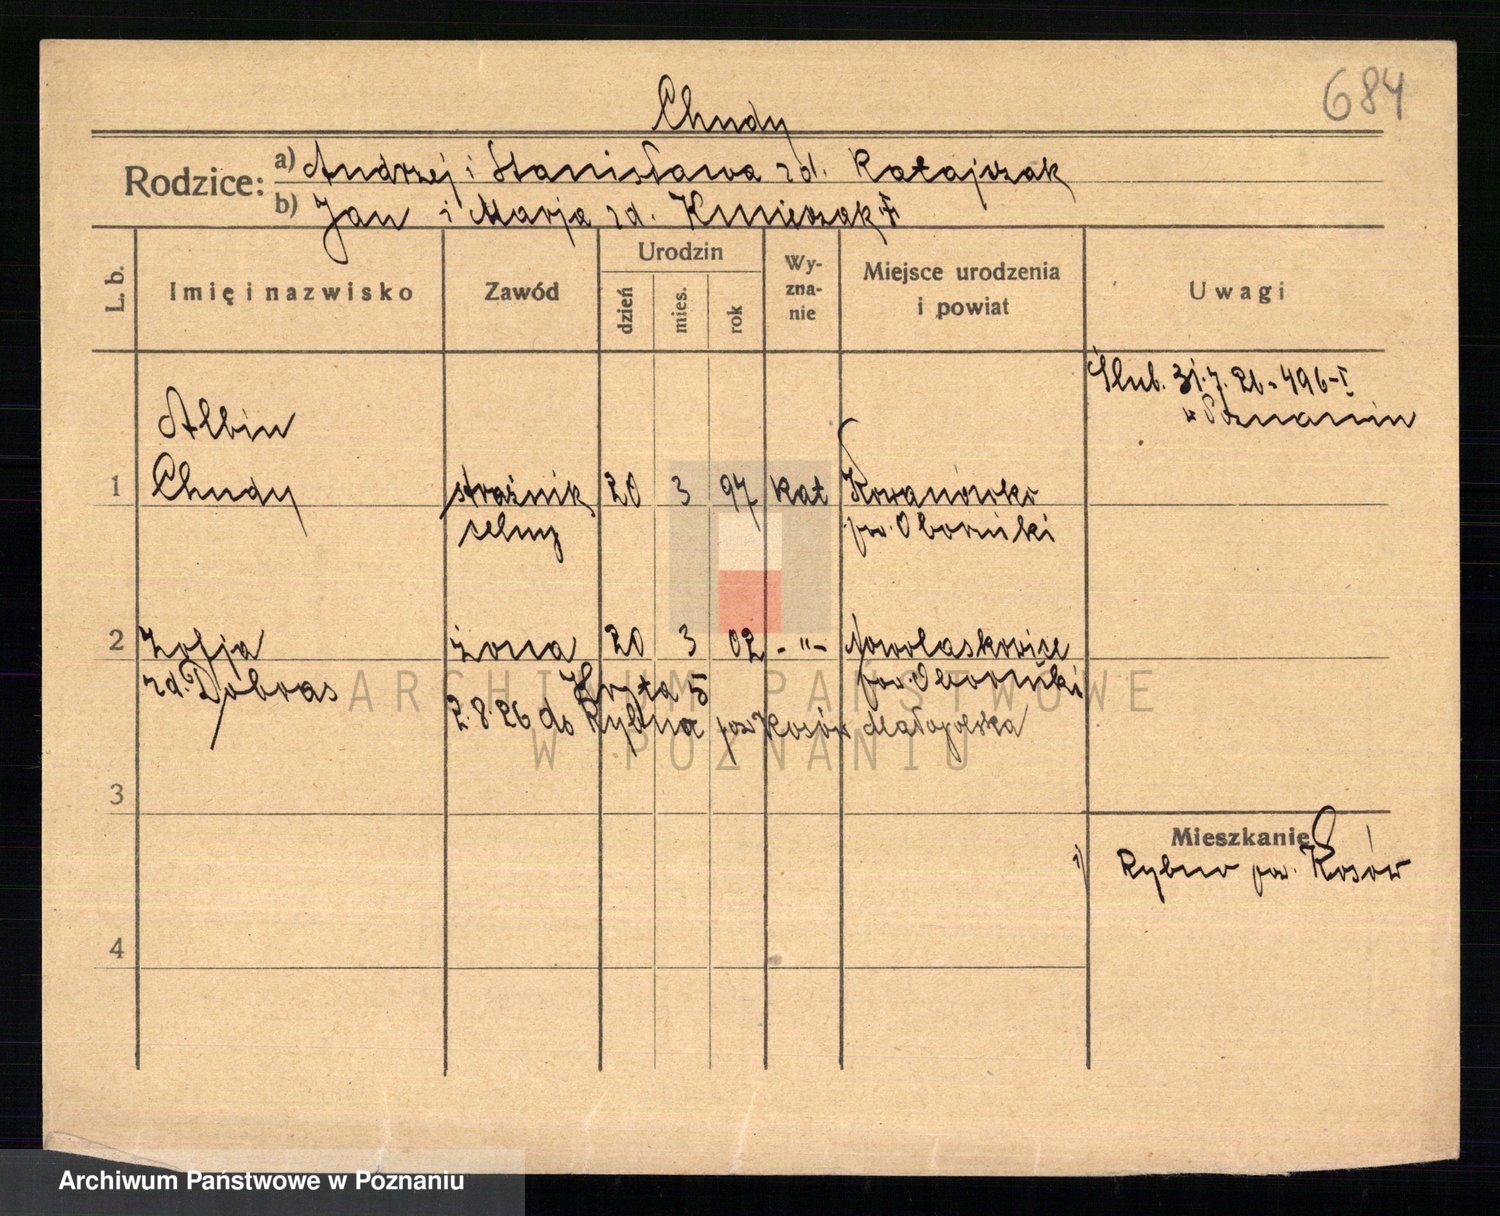 684
Chudy
Rodzice: a) Andrzej i Stanisława zd. Ratajczak
b) Jan i Marja zd. Kmieczak
L. b. Imię i nazwisko Zawód Urodzin dzień mies. rok Wy-zna-nie Miejsce urodzenia i powiat Uwagi
Ślub. 31.7.26. 496-I
w Poznaniu
Albin
1 Chudy strażnik 20 3 97 kat Kowanówko
celny pow. Oborniki
2 Zofja żona 20 3 02 -"- 
zd. Dobras 5 pow. Oborniki
2.8.26 do Rybna pow Kosów Małopolska
3
Mieszkanie
1) Rybno pow. Kosów
4
ARCHIWUM PAŃSTWOWE
W POZNANIU
Archiwum Państwowe w Poznaniu